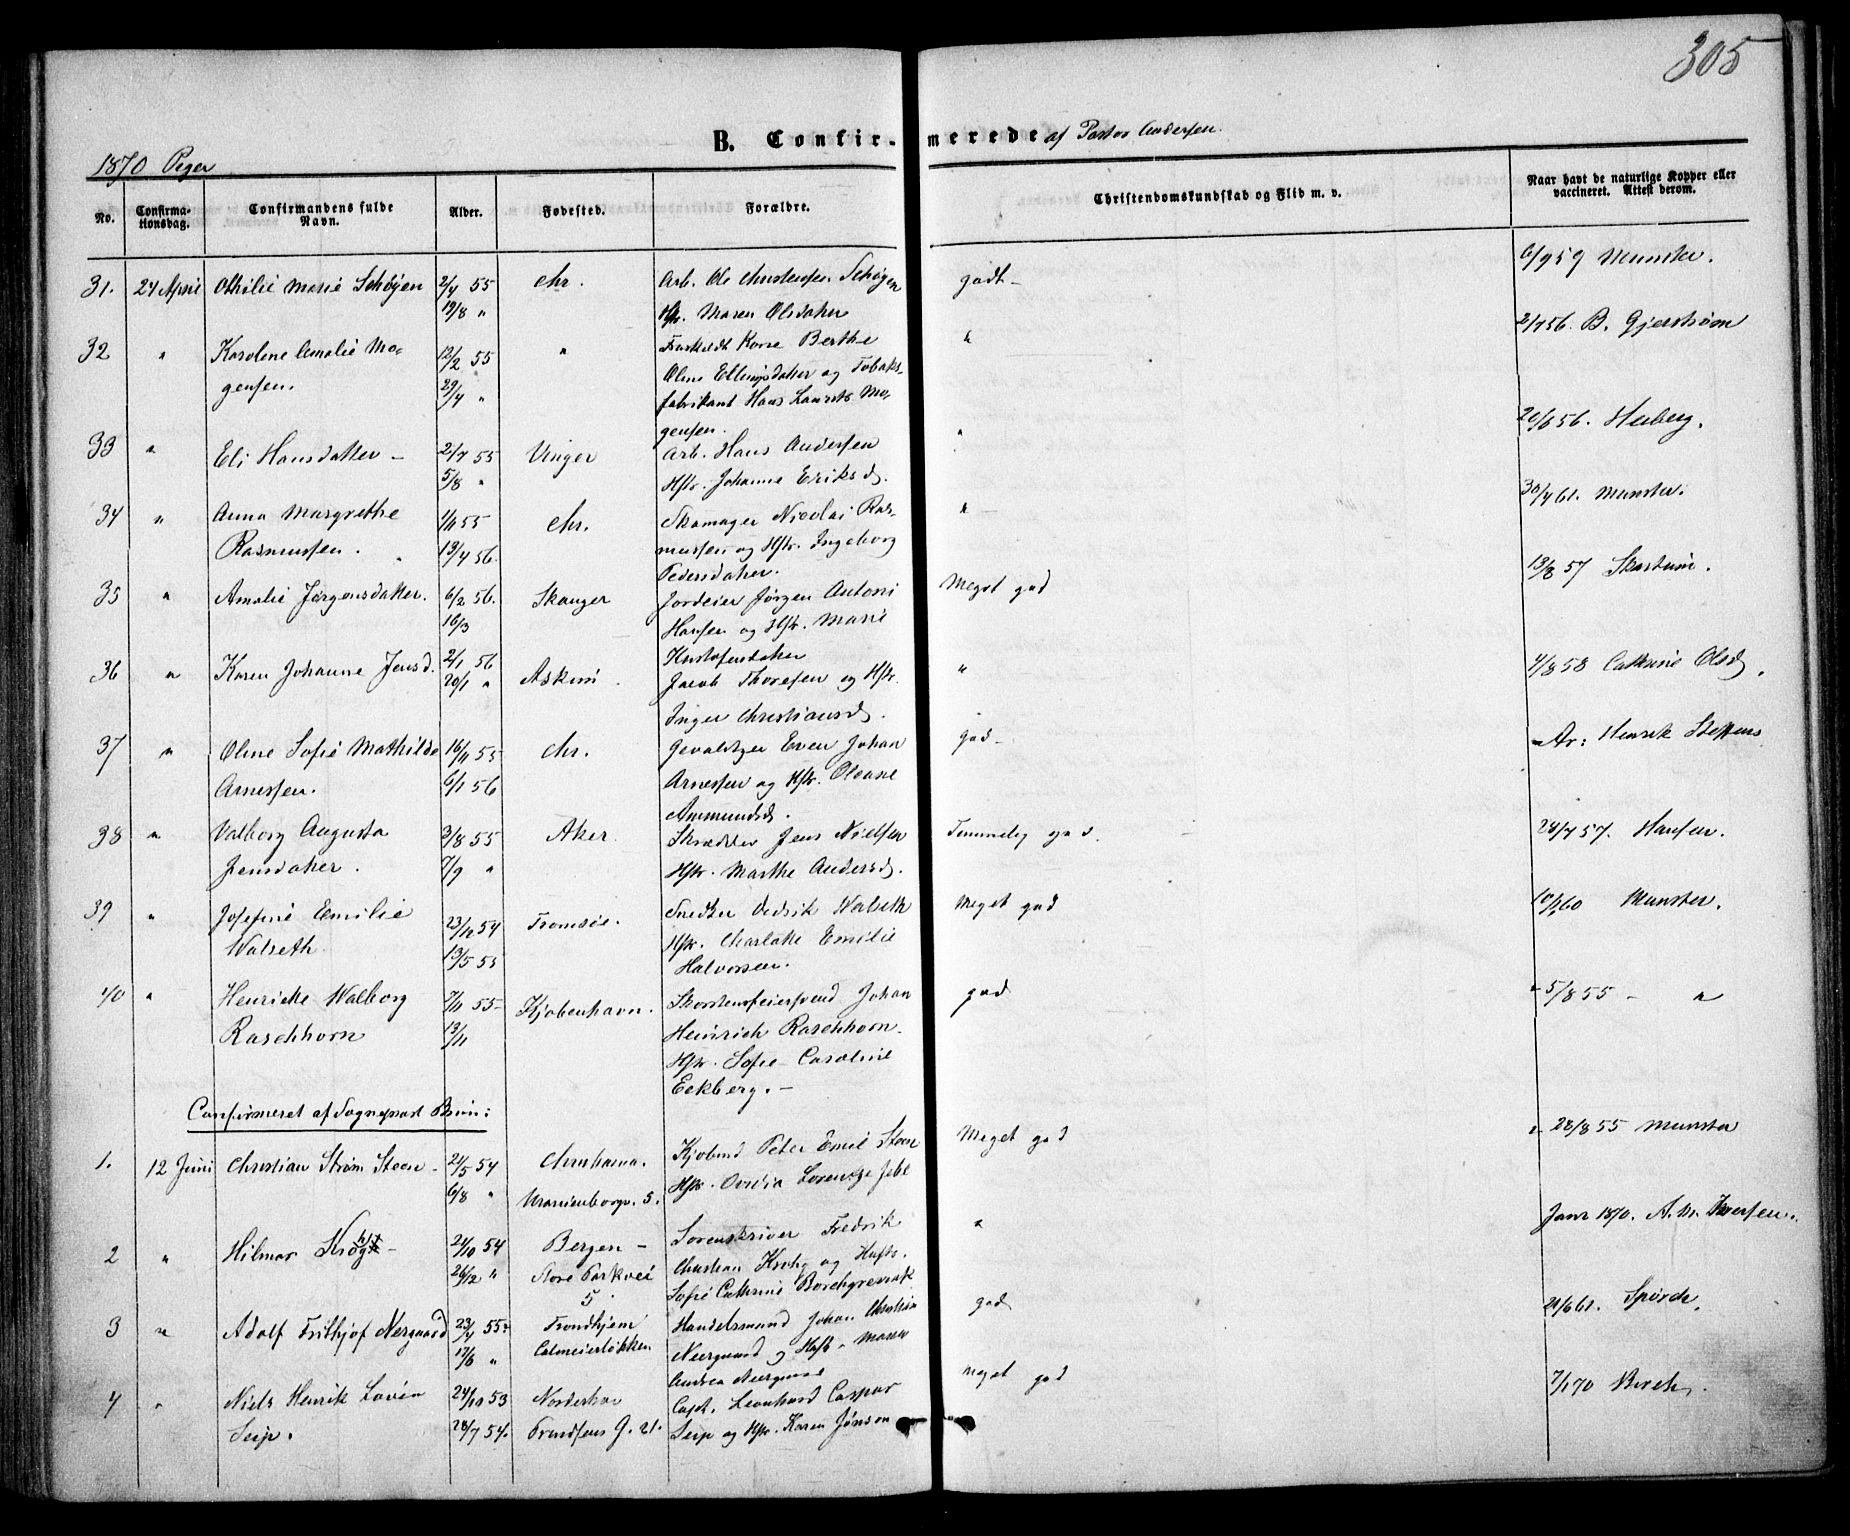 305
B. Confir-merede af Pastor Andersen.
1870 Piger
No.
Confirma-
tionsdag.
Confirmandens fulde
Navn.
Alder.
Fødested.
Forældre.
Christendomskundskab og Flid m. v.
Naar havt de naturlige Kopper eller
vaccineret. Attest derom.
31. 24 April Othilie Marie Schøyen 2/4 55 Chr. Arb. Ole Christensen Schøyen godt - 6/9 59 Munster.
19/8 " Hstr. Maren Olsdatter
32 " Karoline Amalie Mo- 12/2 55 " Fraskildt Kone Berthe " 2/7 56. B. Gjerstrøm
gensen. 29/4 " Oline Ellingsdatter og Tobaks-
fabrikant Hans Laurits Mo-
gensen.
33 " Eli Hansdatter - 2/7 55 Vinger Arb. Hans Andersen " 20/6 56. Heiberg.
5/8 " Hstr. Johanne Eriksd.
34 " Anna Margrethe 1/11 55 Chr. Skomager Nicolai Ras- " 30/4 61. Munster.
Rasmussen. 13/4 56. mussen og Hstr. Ingeborg
Pedersdatter.
35 " Amalie Jørgensdatter. 6/2 56. Skanger Jordeier Jørgen Antoni Meget god 13/8 57
16/3 Hansen og Hstr. Marie
Kristofersdatter
36 " Karen Johanne Jensd. 2/1 56 Askim. Jacob Thoresen og Hstr. " 4/8 58 Cathrine Olsd.
20/1 " Inger Christiansd.
37 " Oline Sofie Mathilde 16/11 55 Chr. Gevaldiger Even Johan god - " Ar: Henrik Steffens
Arnessen. 6/1 56 Arnessen og Hstr. Oleane
Ammundsd.
38 " Valborg Augusta 3/8 55 Aker. Skrædder Jens Nielsen Temmelig god. 28/7 57. Hansen.
Jensdatter. 7/9 " Hstr. Marthe Andersd.
39 " Josefine Emilie 23/12 54 Tromsøe. Snedker Fedrik Walseth Meget god 10/2 60 Munster.
Walseth. 13/5 55 Hstr. Charlotte Emilie
Halvorsen.
40 " Henricke Walborg 7/11 55- Kjøbenhavn. Skorstensfeiersvend Johan god " 5/8 55 - "
Raschhorn 13/11 Heinrich Raschhorn.
Hstr. Sofie Caroline
Eckberg. -
Confirmeret af Sognepræst Bruun:
1. 12 Juni Christian Strøm Steen - 21/5 54 Christiania. Kjøbmd Peter Emil Steen Meget god " 28/8 55 Munster
6/8 " Uranienborgv. 5. Hstr. Ovidia Lorentze Jebe
2 " Hilmar Krohg - 21/10 54 Bergen - Sorenskriver Fredrik " Janr 1870. A. M. Iversen.
26/2 " Store Parkvei Christian Krohg og Hustr.
5 Sofie Cathrine Borchgrevink
3 " Adolf Frithjof Nergaard 23/4 55. Trondhjem Handelsmand Johan Christian god 21/6 61. Spørck.
17/6 " Calmeierløkken Neergaard og Hustr. Maren
Andrea Neergaard
4 " Niels Henrik Lovin 24/10 53 Norderhov Capt. Leonhard Caspar Meget god 7/1 70 Birch.
Seip. 28/7 54. Trondsens G. 21. Seip og Hstr. Karen Jønson